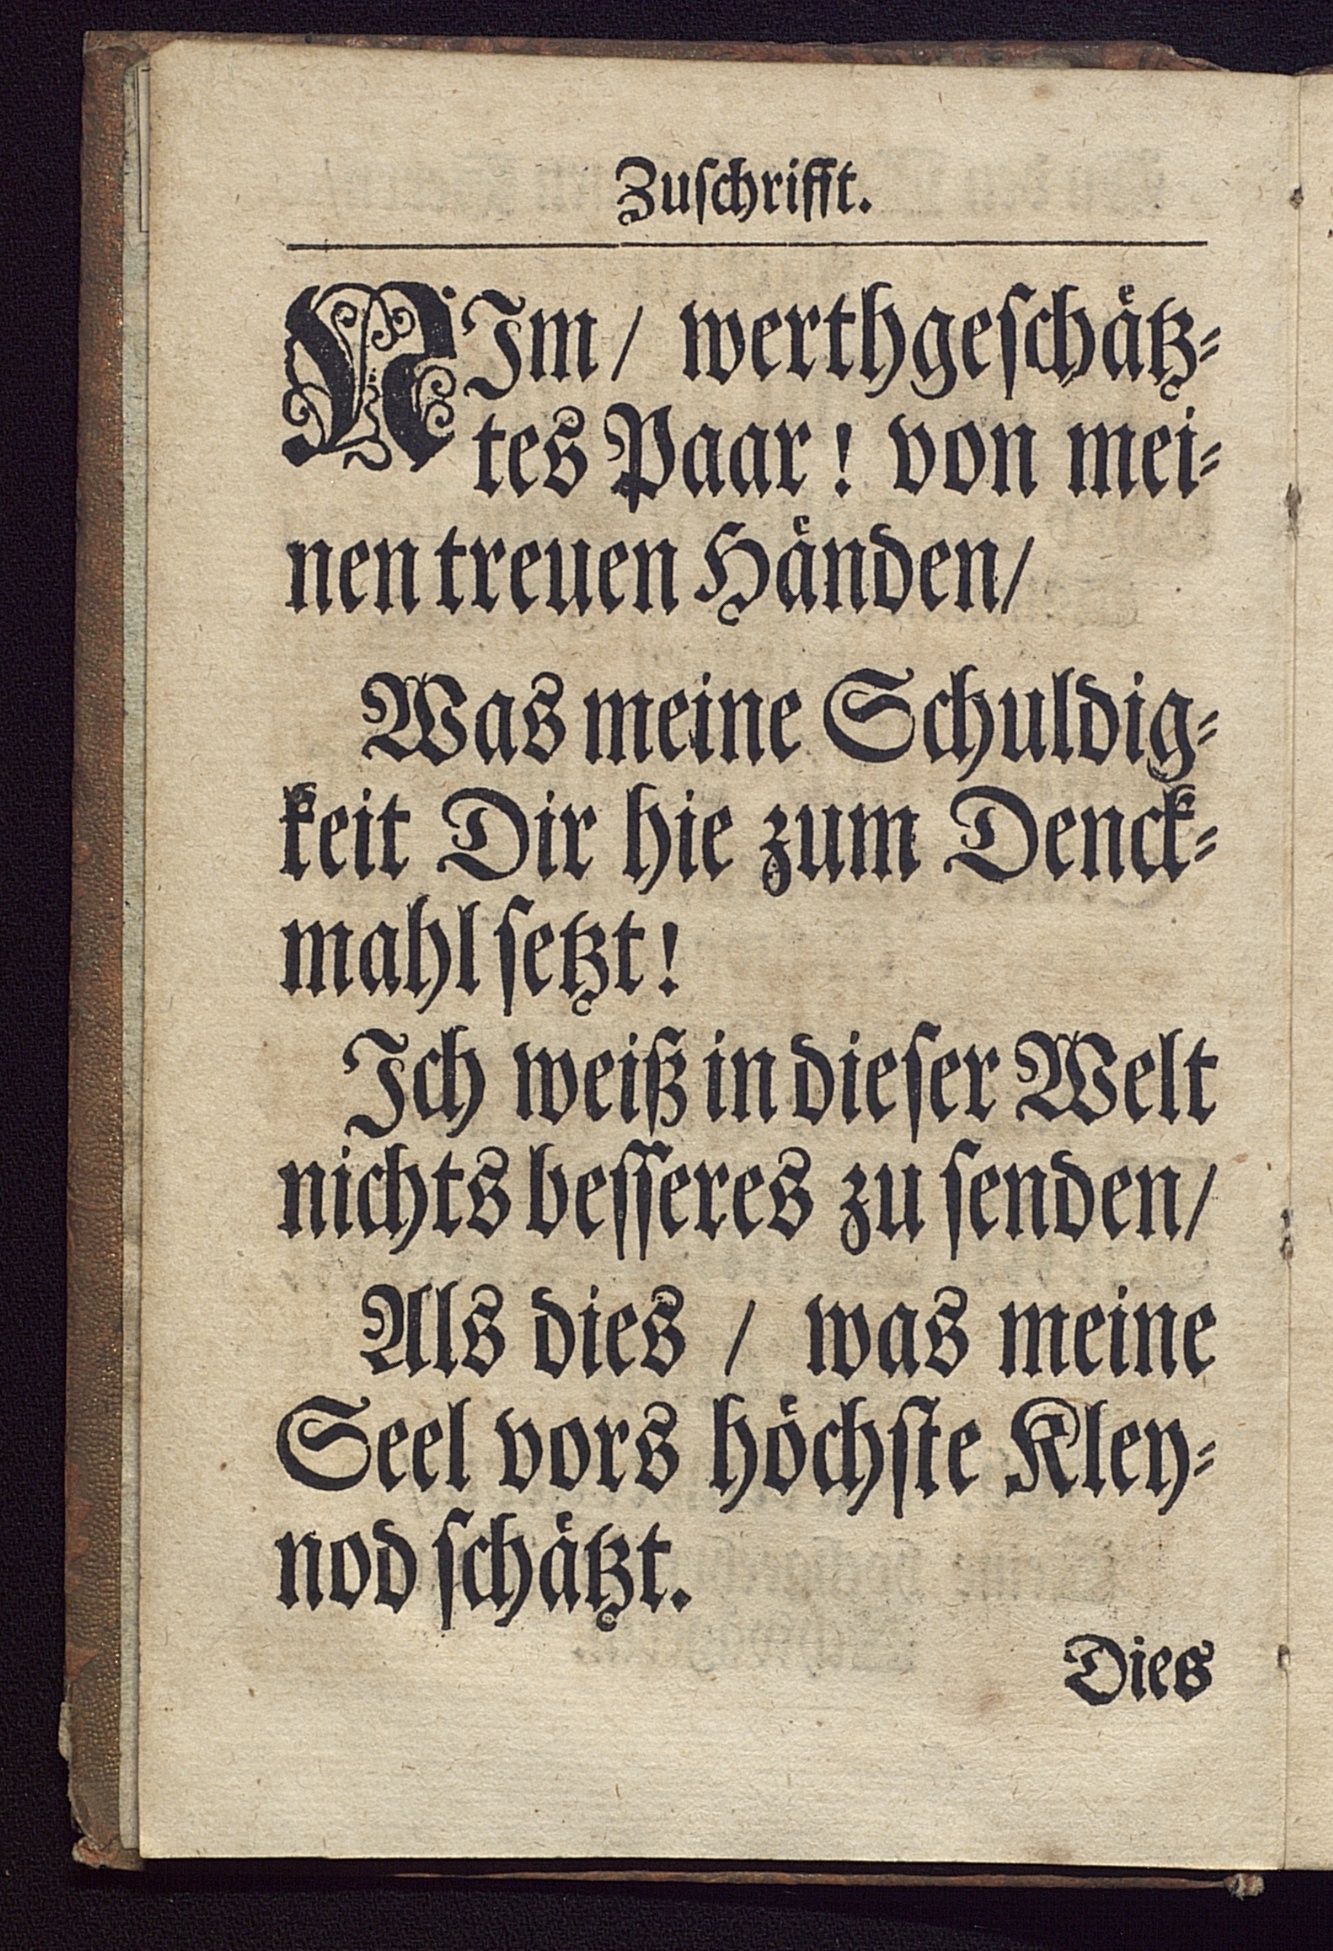 Zuſchrifft.
NIm/ werthgeſchaͤtz⸗
tes Paar! von mei⸗
nen treuen Haͤnden/
Was meine Schuldig⸗
keit Dir hie zum Denck⸗
mahl ſetzt!
Ich weiß in dieſer Welt
nichts beſſeres zu ſenden/
Als dies / was meine
Seel vors hoͤchſte Kley⸗
nod ſchaͤtzt.
Dies